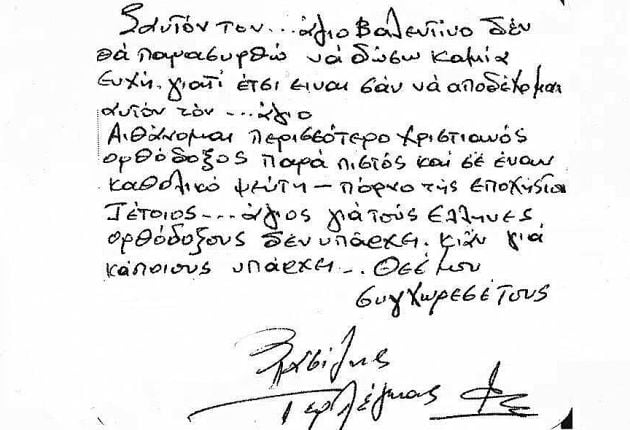 Σαυτόν τον... άγιο Βαλεντίνο δέν
θά παρασυρθώ νά δώσω καμία
ευχή. γιατί έτσι ειναι σάν νά αποδέχομαι
αυτόν τόν... άγιο
Αιθάνομαι περισσότερο χριστιανός
ορθόδοξος παρά πιστός και σέ έναν
καθολικό ψεύτη - πόρνο της
Τέτοιος... άγιος γιά τούς Ελληνες
ορθόδοξους δέν υπάρχει. κιάν γιά
κάποιους υπάρχει... Θεέ μου
συγχωρεσέ τους
Βασίλης
Τερλέγκας